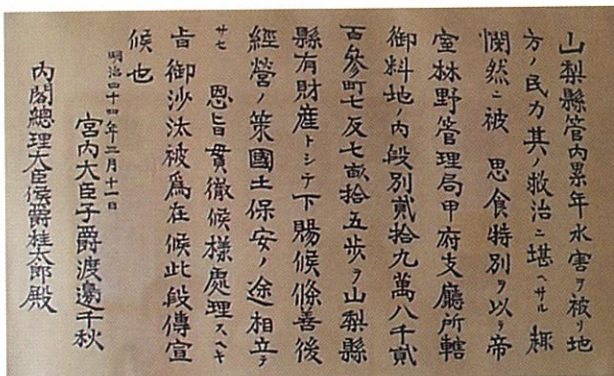 山梨縣管内累年水害ヲ被リ地
方ノ民力其ノ救治ニ堪ヘサル趣
憫然ニ被 思食特別ヲ以テ帝
室林野管理局甲府支廳所轄
御料地ノ内段別貳拾九萬八千貳
百參町七反七畝拾五歩ヲ山梨縣
縣有財産トシテ下賜候條善後
經營ノ策國土保安ノ途相立テ
サセ 恩旨貫徹候樣處理スヘキ
旨御沙汰被爲在候此段傳宣
候也
明治四十四年三月十一日
宮内大臣子爵渡邊千秋
内閣總理大臣侯爵桂太郎殿